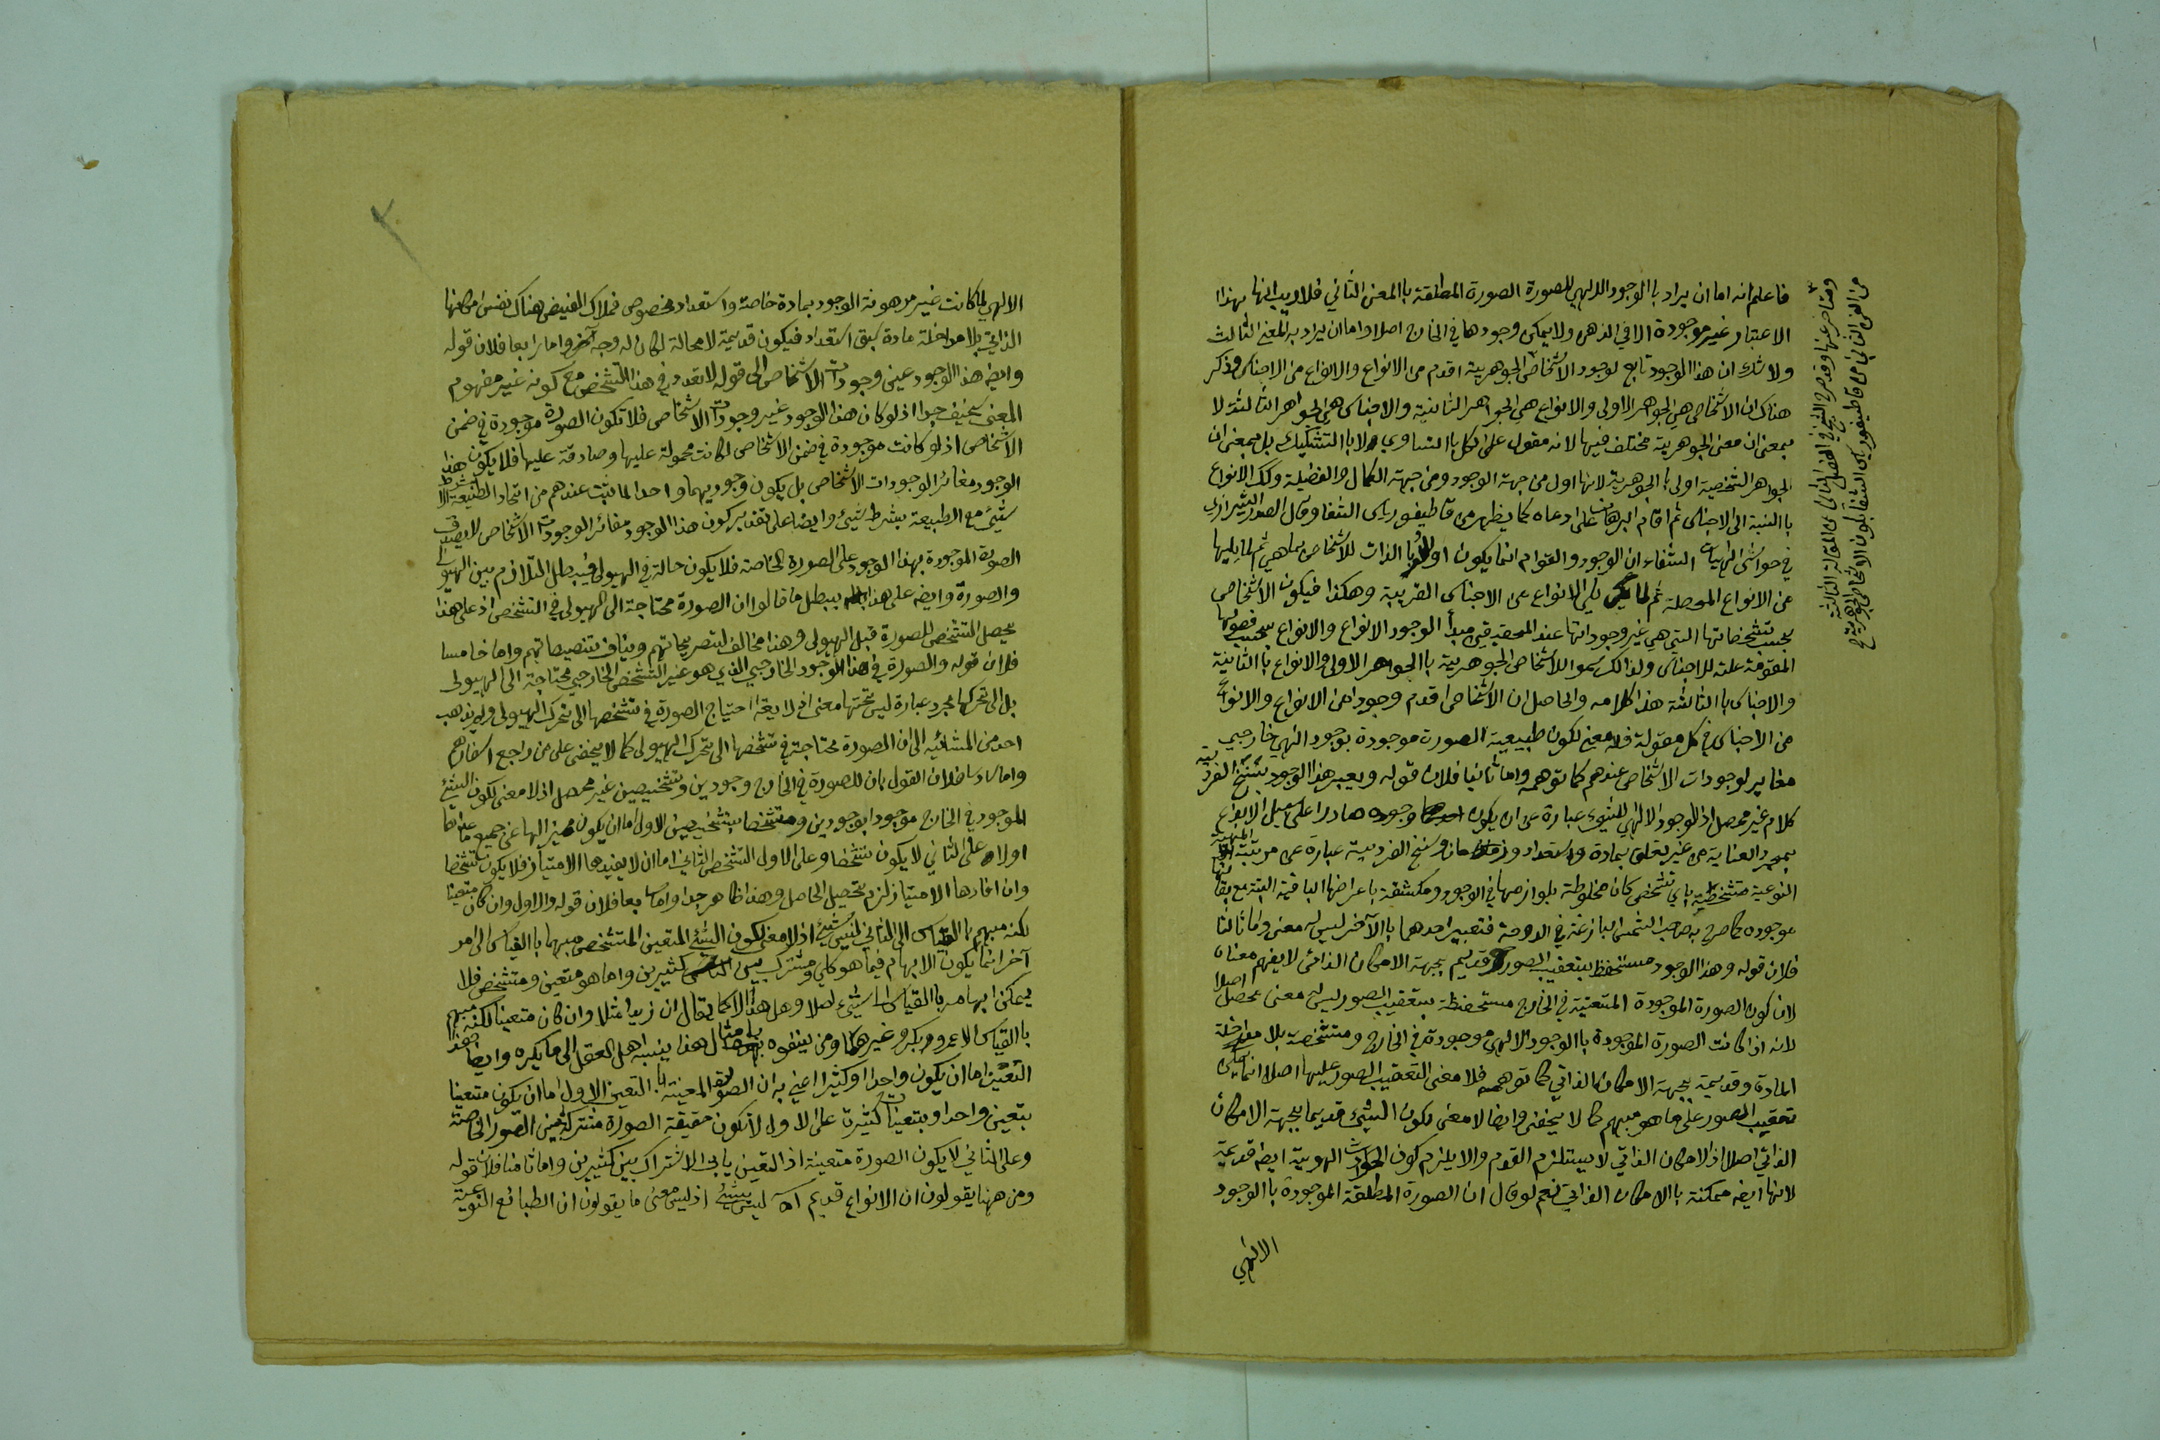 فاعلم انه اما ان يراد با الوجود الالهي للصورة الصورة المطلقة با المعنى الثاني فلا ريب انها بهذا
الاعتبار غير موجودة الا في الذهن ولا يمكن وجودها في الخارج اصلا واما ان يراد به المعنى الثالث
ولا شك ان هذا الوجود تابع لوجود الاشخاص الجوهرية اقدم من الانواع والانواع من الاجناس وذكر
هناك ان الاشخاص هي الجواهر الاولى والانواع هي الجواهر الثانية والاجناس هي الجواهر الثالثة لا
بمعنى ان معنى الجوهرية مختلف فيها لانه مقول على الكل با التساوي ولا با التشكيك بل بمعنى ان
الجواهر الشخصية اولى با الجوهرية لانها اول من جهة الوجود ومن جهة الكمال والفضيلة وكك الانواع
با النسبة الى الاجناس ثم اقام البرهان على ادعاه كما يظهر من قاطيغورياس الشفا وقال الصدر الشيرازي
في حواشي الهيات الشفاء ان الوجود والقوام انما يكون اولا وبا الذات للاشخاص بما هي ثم لما يليها
من الانواع المحصلة ثم لما يلي الانواع من الاجناس القريبة وهكذا فيكون الاشخاص
بحسب تشخصاتها التي هي غير وجوداتها عند المحققين مبدأ الوجود الانواع والانواع بحسب فصولها
المقومة علة للاجناس ولذالك سموا للاشخاص الجوهرية با الجواهر الاولى والانواع با الثانية
والاجناس با الثالثة هذا كلامه والحاصل ان الاشخاص اقدم وجودا من الانواع والانواع
من الاجناس في كل مقولة فلا معنى لكون طبيعية الصورة موجودة بوجود الهي خارجي
مغاير لوجودات الاشخاص عندهم كما توهمه واما ثانيا فلان قوله ويعبر هذا الوجود بسنخ الفردية
كلام غير محصل اذ الوجود الالهي للشيء عبارة عن ان يكون وجوده صادرا على سبيل الابداع
بمجرد العناية من غير تعلق بمادة واستعداد وزمان وسنخ الفردية عبارة عن مرتبة
النوعية متشخصة باي تشخص كان مخلوطة بلوازمها في الوجود ومكتنفة باعراضها الباقية البتة مع بقاء
موجوده كما صرح به صاحب الشمس البازغة في الدوحة فتعبير احدهما با الآخر ليس له معنى واما ثالثا
فلان قوله وهذا الوجود مستحفظ بتعقيب الصور قديم بجهة الامكان الذاتي لا يفهم معناه اصلا
لان كون الصورة الموجودة المتعينة في الخارج مستحفظة بتعقيب الصور ليس له معنى محصل
لانه اذا كانت الصورة الموجودة با الوجود الالهي موجودة في الخارج ومتشخصة بلا مداخلة
المادة وقديمة بجهة الامكان الذاتي كما توهمه فلا معنى لتعقيب الصور عليها اصلا انما يكون
تعقيب الصور على ما هو مبهم كما لا يخفى وايضا لا معنى لكون الشيء قديما بجهة الامكان
الذاتي اصلا اذ الامكان الذاتي لا يستلزم القدم والا يلزم كون الحوادث اليومية ايضا قديمة
لانها ايضا ممكنة با الامكان الذاتي نعم لو قال ان الصورة المطلقة الموجودة با الوجود
الالهي
وقد صرح الشيخ في الفصل الثاني من المقالة الثالثة
من الفن الثاني من قاطيغورياس الشفا بكون الاشخاص الجوهرية
الالهي لما كانت غير مرهونة الوجود بمادة خاصة واستعداد مخصوص فملاك الفيض هناك نفس امكانها
الذاتي بلا مداخلة مادة وسبق استعداد فيكون قديمة لا محالة لكان له وجه آخر واما رابعا فلان قوله
وايضا هذا الوجود عين وجودات الاشخاص الى قوله لا تعدد في هذا التشخص مع كونه غير مفهوم
المعنى سخيف جدا اذ لو كان هذا الوجود غير وجودات الاشخاص فلا تكون الصورة موجودة في ضمن
الاشخاص اذ لو كانت موجودة في ضمن الاشخاص لكانت محمولة عليها وصادقة عليها فلا يكون هذا
الوجود مغائر الوجودات الاشخاص بل يكون وجوديهما واحد لما ثبت عندهم من اتحاد الطبيعة لا بشرط
شيء مع الطبيعة بشرط شيء وايضا على تقدير كون هذا الوجود مغائر الوجودات الاشخاص لا يصدق
الصورة الموجودة بهذا الوجود على الصورة الخاصة فلا يكون حالة في الهيولى فيبطل التلازم بين الهيولى
والصورة وايضا على هذا يبطل ما قالوا ان الصورة محتاجة الى الهيولى في التشخص اذ على هذا
يحصل التشخص للصورة قبل الهيولى وهذا مخالف لتصريحاتهم وينافي تنصيصاتهم واما خامسا
فلان قوله والصورة في هذا الوجود الخارجي الذي هو غير التشخص الخارجي محتاجة الى الهيولى
بل الى تحركها مجرد عبارة ليس تحتها معنى اذ لا يعقل احتياج الصورة في تشخصها الى تحرك الهيولى ولم يذهب
احد من المشائية الى ان الصورة محتاجة في تشخصها الى تحرك الهيولى كما لا يخفى على من راجع اسفارهم
واما سادسا فلان القول بان للصورة في الخارج وجودين وتشخصين غير محصل اذ لا معنى لكون الشيء
الموجود في الخارج موجودا بوجودين ومتشخصا بتشخصين اذ الاول اما ان يكون مميزا لها عن جميع ما عداها
اولا وعلى الثاني لا يكون تشخصا وعلى الاول التشخص الثاني اما ان لا يفيدها الامتياز فلا يكون تشخصا
وان افادها الامتياز لزم تحصيل الحاصل وهذا ظاهر جدا واما سابعا فلان قوله والاول وان كان متعينا
لكنه مبهم با القياس الى الثاني ليس بشيء اذ لا معنى لكون الشيء المتعين المتشخص مبهما با القياس الى امر
آخر انما يكون الابهام فيما هو كلي ومشترك بين كثيرين واما هو متعين ومتشخص فلا
يمكن ابهامه با القياس الى شيء اصلا وهل هذا الا كما يقال ان زيدا مثلا وان كان متعينا لكنه مبهم
با القياس الى عمرو وبكر وغيرهما ومن يتفوه بامثال هذا ينسبه اهل العقل الى ما يكره وايضا هذا
التعين اما ان يكون واحدا او كثيرا اعني به ان الصورة المعينة با التعين الاول اما ان يكون متعينا
بتعين واحد او بتعينات كثيرة على الاول لا تكون حقيقة الصورة مشتركة بين الصور الخاصة
وعلى الثاني لا يكون الصورة متعينة اذ التعين يابى الاشتراك بين كثيرين واما ثامنا فلان قوله
ومن ههنا يقولون ان الانواع قديم آه ليس بشيء اذ ليس معنى ما يقولون ان الطبائع النوعية